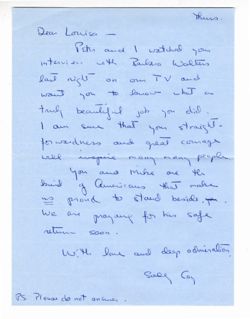 Thurs.
Dear Louisa —
Peter and I watched your
interview with Barbara Walters
last night on our TV and
want you to know what a
truly beautiful job you did.
I am sure that your straight-
forwardness and great courage
will inspire many many people
You and Mike are the
kind of Americans that make
us proud to stand beside.
We are praying for his safe
return soon.
With love and deep admiration,
Sally
P.S. Please do not answer.